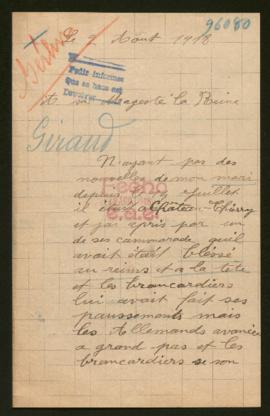 96080
Le 9 Aout 1918
Pedir informes
A sa Magesté la Reine
Giraud
N'ayant pas des
nouvelles de mon mari
depuis le 19 Juillet
il était a Château-Thierry
et jai apris par un
de ses cammarade quil
avait était blessé
au reims et a la tête
et les brancardiers
lui avait fait ses
paussements mais
les Allemands avancé
a grand pas et les
brancardiers se son
Fecho
e.a.e.